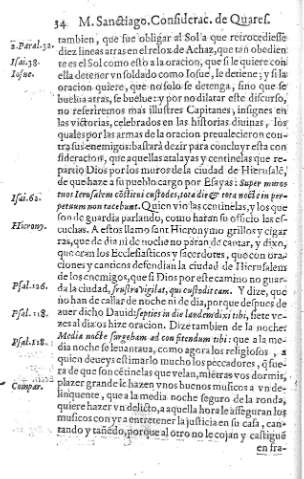 34 M. Sanctiago. Considerac. de Quares.
2. Paral. 32.
Isai. 38.
Iosue.
Isai. 62.
Hierony.
Psal. 126.
Psal. 118.
Psal. 118.
Compar.
tambien, que fue obligar al Sol a que retrocediesse
diez lineas atras en el relox de Achaz, que tan obedien
te es el Sol como esto a la oracion, que si le quiere con
ella detener vn soldado como Iosue, le detiene; y si la
oracion quiere, que no solo se detenga, sino que se
buelua atras, se buelue: y por no dilatar este discurso,
no referiremos mas illustres Capitanes, insignes en
las victorias, celebrados en las historias diuinas, los
quales por las armas de la oracion preualecieron con
tra sus enemigos: bastarà dezir para concluyr esta con
sideracion, que aquellas atalayas y centinelas que re-
partio Dios por los muros de la ciudad de Hierusalẽ,
de que haze a su pueblo cargo por Esayas: Super muros
tuos Ierusalem cõstitui custodes, tota die & tota nocte in per-
petuum non tacebunt. Quien vio las centinelas, y los que
son de guardia parlando, como haran su officio las es-
cuchas. A estos llamo sant Hieronymo grillos y cigar
ras, que de dia ni de noche no paran de cantar, y dixo,
que eran los Ecclesiasticos y sacerdotes, que con ora-
ciones y canticos defendian la ciudad de Hierusalem
de los enemigos, que si Dios por este camino no guar-
da la ciudad, frustra vigilat, qui custodit eam. Y dize, que
no han de callar de noche ni de dia, porque despues de
auer dicho Dauid: septies in die laudem dixi tibi, siete ve-
zes al dia os hize oracion. Dize tambien de la noche:
Media nocte surgebam ad confitendum tibi: que a la me-
dia noche se leuantaua, como agora los religiosos, a
quien deueys estimarlo mucho los peccadores, q̃ fue-
ra de que son cẽtinelas que velan, miẽtras vos dormis,
plazer grande le hazen vnos buenos musicos a vn de-
linquente, que a la media noche seguro de la ronda,
quiere hazer vn delicto, a aquella hora le asseguran los
musicos con yr a entretener la justicia en su casa, can-
tando y tañẽdo, porque al otro no le cojan y castiguẽ
en fra-